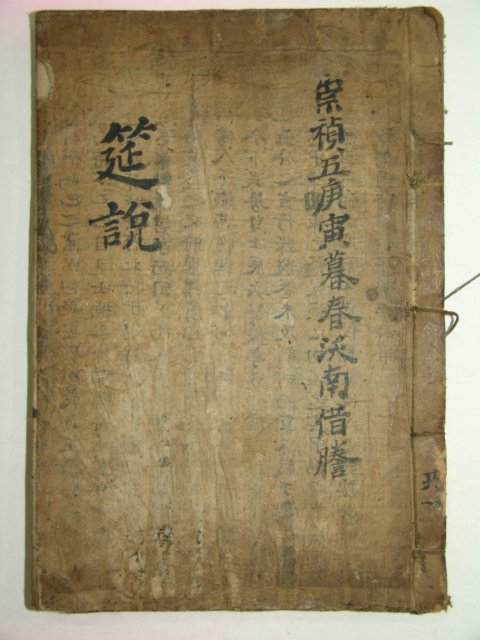 崇禎五庚寅暮春沃南借謄
筵說
共一